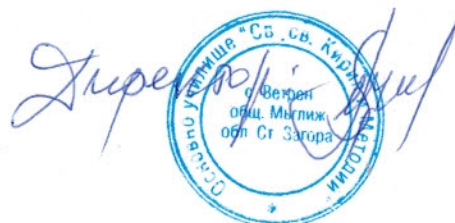 Директор:
Основно училище "Св. св. Кирил и Методий"
с. Ветрен
общ. Мъглиж
обл Ст Загора